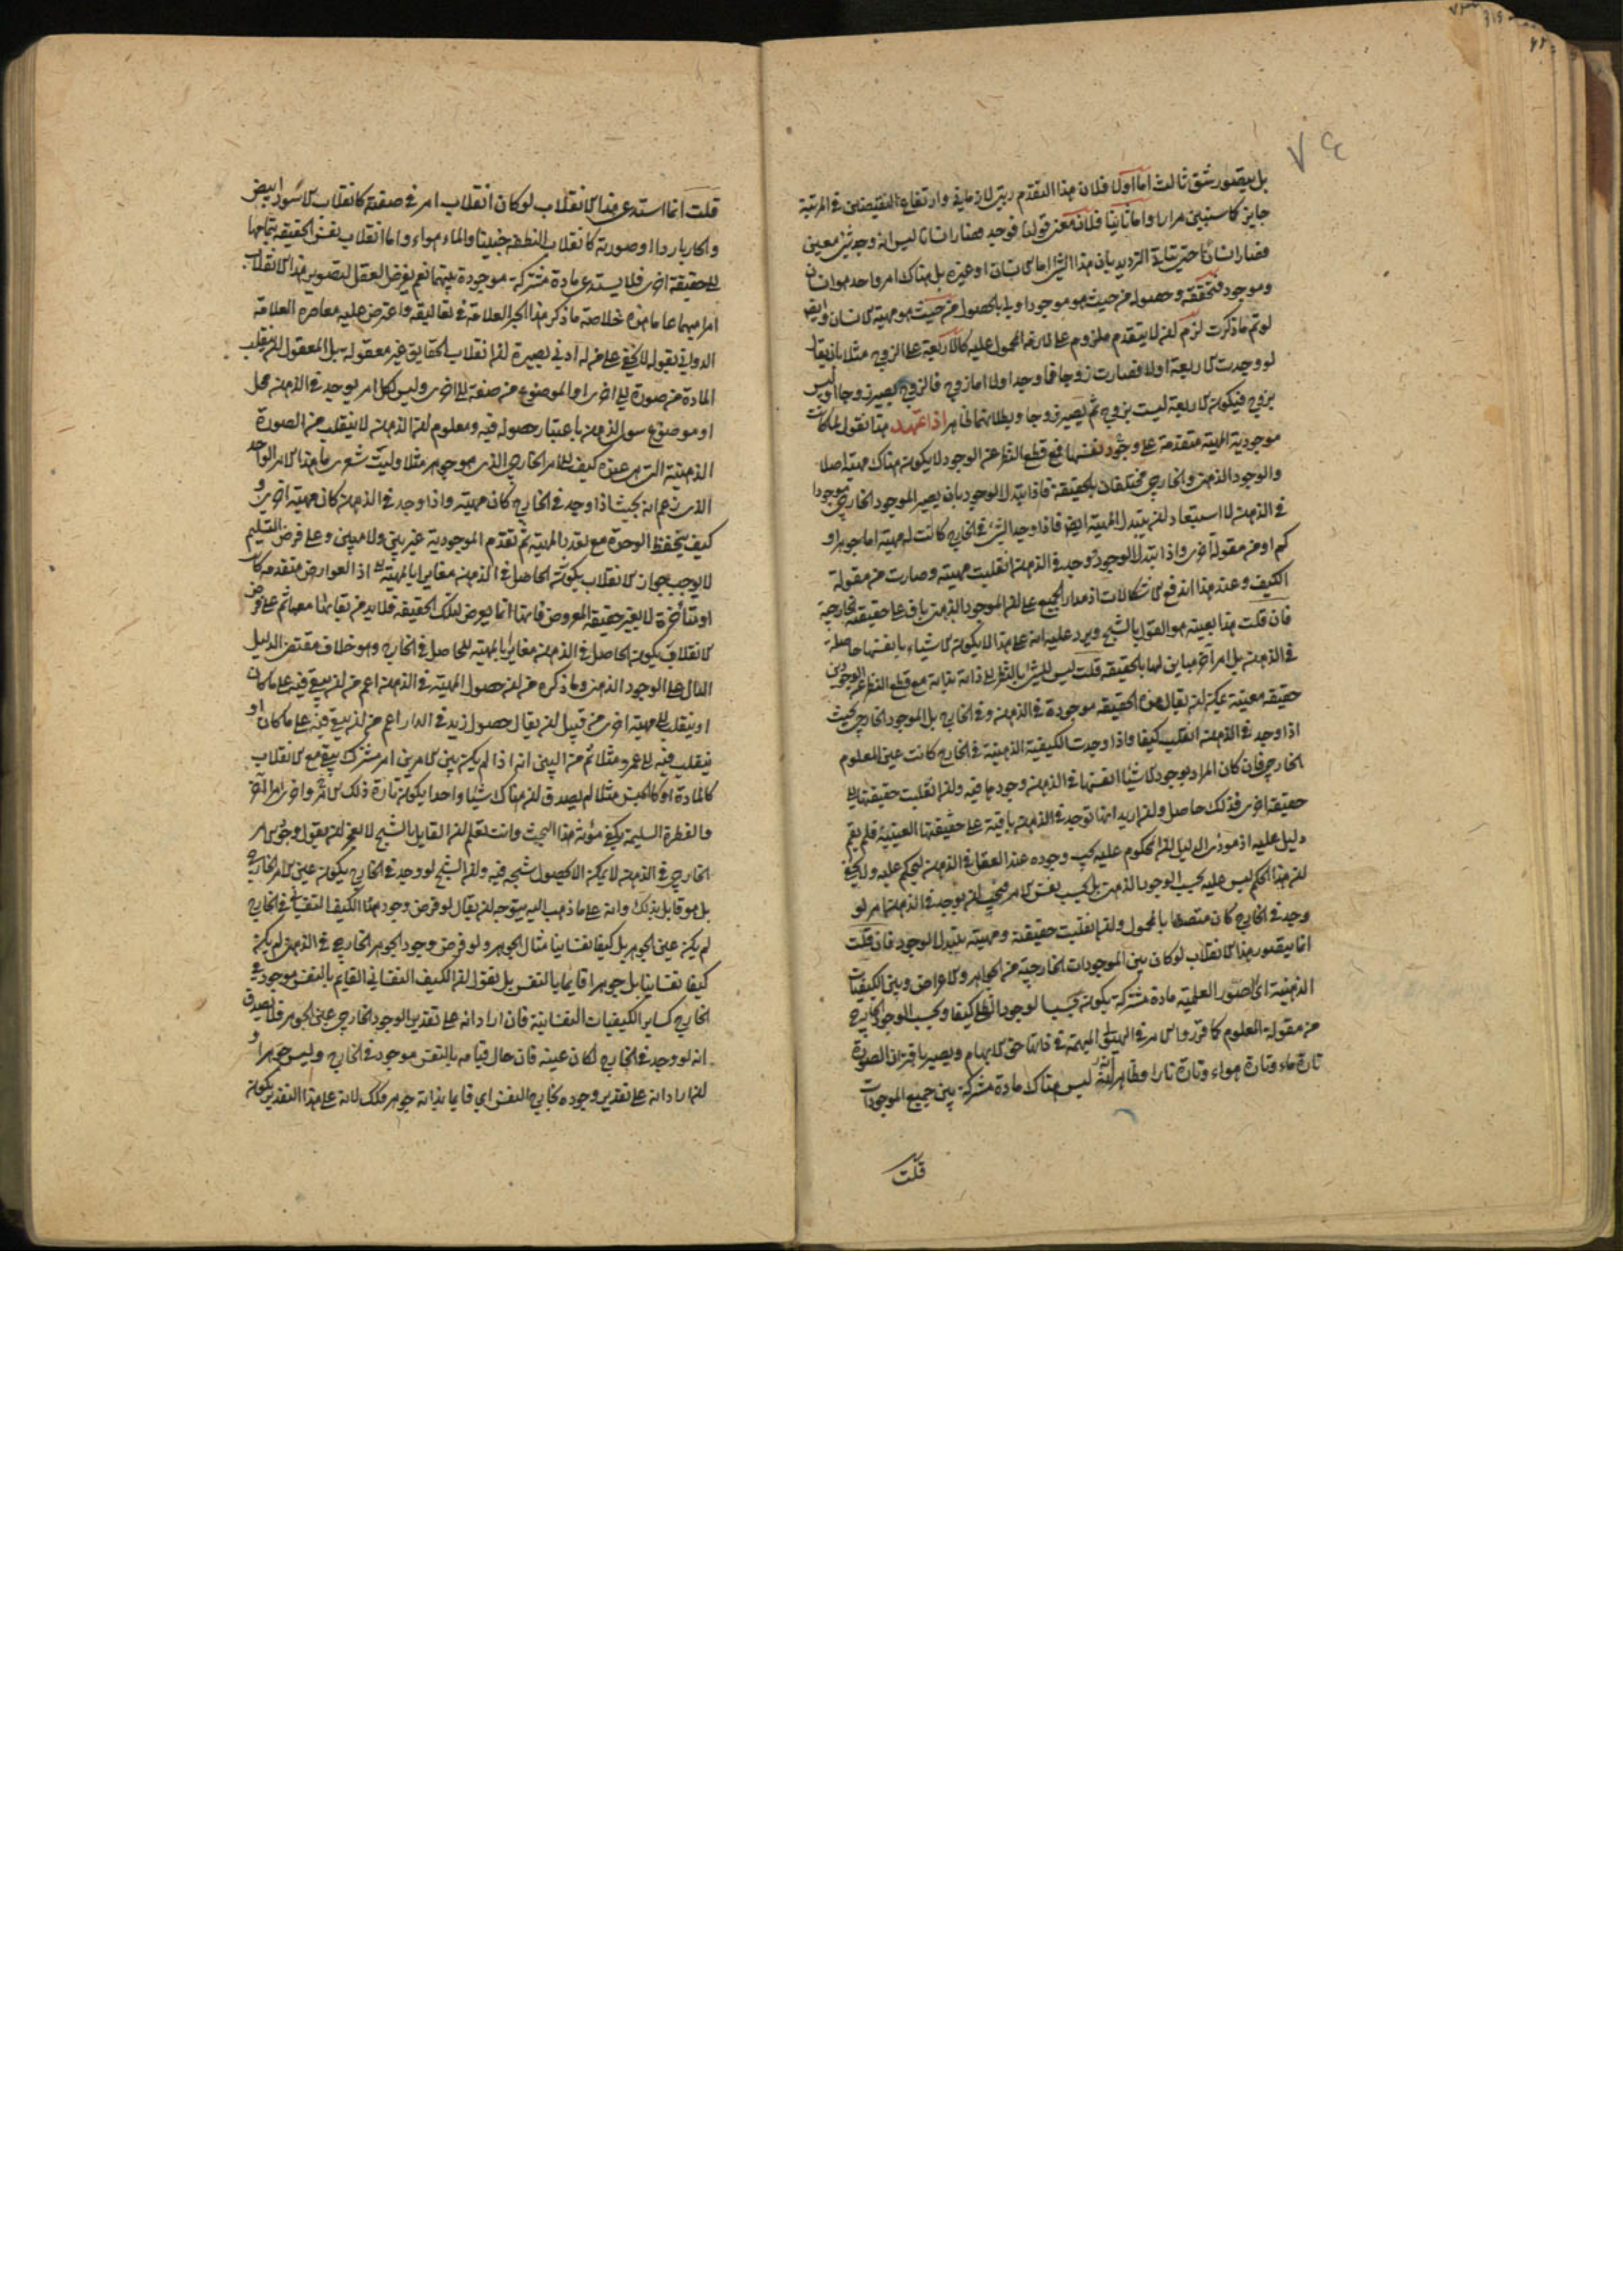 ٧٤
بل يتصور شق ثالث اما اولا فلان هذا التقدم رتبي لا زماني وارتفاع النقيضين في المرتبة
جايز كما سنبين مرارا واما ثانيا فلان معنى قولنا فوجد فصار انسانا ليس انه وجد شئ معين
فصار انسانا حتى يتاتى الترديد بان هذا الشئ اما انسان او غيره بل هناك امر واحد هو انسان
وموجود فتحققه وحصوله من حيث هو موجود اولى بالحصول من حيث هو مهية الانسان وايض
لو تم ما ذكرت لزم ان لا يتقدم ملزوم على لازمه المحمول عليه كالاربعة على الزوج مثلا بان يقال
لو وجدت الاربعة اولا فصارت زوجا فما وجد اولا اما زوج فالزوج يصير زوجا او ليس
بزوج فيكون الاربعة ليست بزوج ثم يصير زوجا وبطلانهما ظاهر اذا تمهد هذا نقول لما كانت
موجودية المهية متقدمة على وجود نفسها فمع قطع النظر عن الوجود لا يكون هناك مهية اصلا
والوجود الذهني والخارجي مختلفان بالحقيقة فاذا تبدل الوجود بان يصير الموجود الخارجي موجودا
في الذهن لا استبعاد ان يتبدل المهية ايض فاذا وجد الشئ في الخارج كانت له مهية اما جوهر او
كم او من مقولة اخرى واذا تبدل الوجود ووجد في الذهن انقلبت مهيته وصارت من مقولة
الكيف وعند هذا اندفع الاشكالات اذ مدار الجميع على ان الموجود الذهني باق على حقيقته الخارجية
فان قلت هذا بعينه هو القول بالشبح ويرد عليه انه على هذا لا يكون الاشياء بانفسها حاصلة
في الذهن بل امر آخر مباين لها بالحقيقة قلت ليس للشئ بالنظر الى ذاته بذاته مع قطع النظر عن الوجودين
حقيقة معينة يمكن ان يقال هذه الحقيقة موجودة في الذهن وفي الخارج بل الموجود الخارجي بحيث
اذا وجد في الذهن انقلب كيفا واذا وجدت الكيفية الذهنية في الخارج كانت عين المعلوم
الخارجي فان كان المراد بوجود الاشيا انفسها في الذهن وجودها فيه وان انقلبت حقيقتها الى
حقيقة اخرى فذلك حاصل وان اريد انها توجد في الذهن باقية على حقيقتها العينية فلم يقم
دليل عليه اذ مودى الدليل ان المحكوم عليه يجب وجوده عند العقل في الذهن ليحكم عليه ولا يخفى
ان هذا الحكم ليس عليه بحسب الوجود الذهني بل بحسب نفس الامر فيجب ان يوجد في الذهن امر لو
وجد في الخارج كان متصفا بالمحمول وان انقلبت حقيقته ومهيته بتبدل الوجود فان قلت
انما يتصور هذا الانقلاب لو كان بين الموجودات الخارجية من الجواهر والاعراض وبين الكيفيات
الذهنية اي الصور العلمية مادة مشتركة يكون بحسب الوجود الظلي كيفا وبحسب الوجود الخارجي
من مقولة المعلوم كما قرروا الامر في الهيولى المبهمة في ذاتها حق الابهام ويصير باقتران الصورة
تارة ماء وتارة هواء وتارة نارا وظاهر انه ليس هناك مادة مشتركة بين جميع الموجودات
قلت
قلت انما استدعى هذا الانقلاب لو كان انقلاب امر في صفته كانقلاب الاسود ابيض
والحار باردا او صورته كانقلاب النطفة جنينا والماء هواء واما انقلاب نفس الحقيقة بتمامها
الى حقيقة اخرى فلا يستدعي مادة مشتركة موجودة بينهما نعم يفرض العقل لتصوير هذا الانقلاب
امرا مبهما عاما هذه خلاصة ما ذكر هذا الحبر العلامة في تعاليقه واعترض عليه معاصره العلامة
الدواني بقوله لا يخفى على من له ادنى بصيرة ان انقلاب الحقايق غير معقول بل المعقول ان ينقلب
المادة من صورة الى اخرى او الموضوع من صفة الى اخرى وليس لكل امر يوجد في الذهن محل
او موضوع سوى الذهن باعتبار حصوله فيه ومعلوم ان الذهن لا ينقلب من الصورة
الذهنية التي هي عنده كيف الى الامر الخارجي الذي هو جوهر مثلا وليت شعري ما هذا الامر الواحد
الذي زعم انه بحيث اذا وجد في الخارج كان مهية واذا وجد في الذهن كان مهية اخرى و
كيف ينحفظ الوحدة مع تعدد المهية ثم تقدم الموجودية غير بين ولا مبين وعلى فرض التسليم
لا يوجب جواز الانقلاب بكون الحاصل في الذهن مغايرا بالمهية اذ العوارض متقدمة كانت
او متأخرة لا يغير حقيقة المعروض فانها انما يعرض لتلك الحقيقة فلا بد من بقائها معها ثم على فرض
الانقلاب يكون الحاصل في الذهن مغايرا بالمهية للحاصل في الخارج وهو خلاف مقتضى الدليل
الدال على الوجود الذهني وما ذكره من ان حصول المهية في الذهن اعم من ان يبقى فيه على ما كان
او ينقلب الى مهية اخرى من قبيل ان يقال حصول زيد في الدار اعم من ان يبقى فيه على ما كان او
ينقلب فيه الى عمرو مثلا ثم من البين انه اذا لم يكن بين الامرين امر مشترك يبقى مع الانقلاب
كالمادة او كالجنس مثلا لم يصدق ان هناك شيئا واحدا يكون تارة ذلك الامر واخرى الامر الآخر
والفطرة السليمة يكفي مؤنة هذا البحث وانت تعلم ان القايل بالشبح لا يعجز ان يقول وجود الامر
الخارجي في الذهن لا يمكن الا بحصول شبحه فيه وان الشبح لو وجد في الخارج يكون عين الامر الخارجي
بل هو قايل بذلك وانه على ما ذهب اليه يتوجه ان يقال لو فرض وجود هذا الكيف النفساني في الخارج
لم يكن عين الجوهر بل كيفا نفسانيا مثال الجوهر ولو فرض وجود الجوهر الخارجي في الذهن لم يكن
كيفا نفسانيا بل جوهرا قايما بالنفس بل نقول ان الكيف النفساني القايم بالنفس موجود في
الخارج كساير الكيفيات النفسانية فان اراد انه على تقدير الوجود الخارجي عين الجوهر فلا يصدق
انه لو وجد في الخارج لكان عينه فان حال قيامه بالنفس موجود في الخارج وليس جوهرا و
ان اراد انه على تقدير وجوده بخارج النفس اي قايما بذاته جوهر فكذلك لانه على هذا التقدير يكون